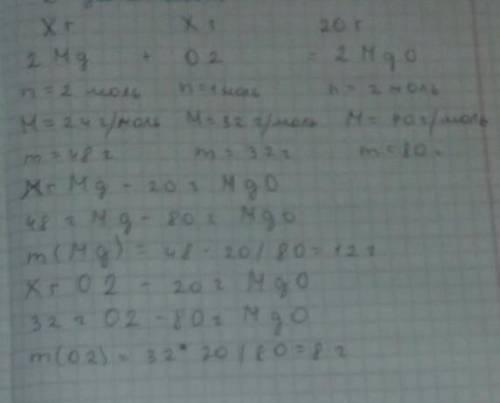 Xг Xг 20г
2Mg + O2 = 2MgO
n=2 моль n=1моль n=2моль
M=24г/моль M=32г/моль M=40г/моль
m=48г m=32г m=80г
Xг Mg - 20г MgO
48г Mg - 80г MgO
m(Mg) = 48·20/80=12г
Xг O2 - 20г MgO
32г O2 - 80г MgO
m(O2) = 32*20/80=8г